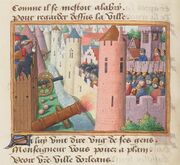 Comme il se mestoit a labry
Pour regarder dessus la ville.
A luy vint dire vng de ses gens
Monseigneur vous voiez a plain
Vostre ville dorleans.